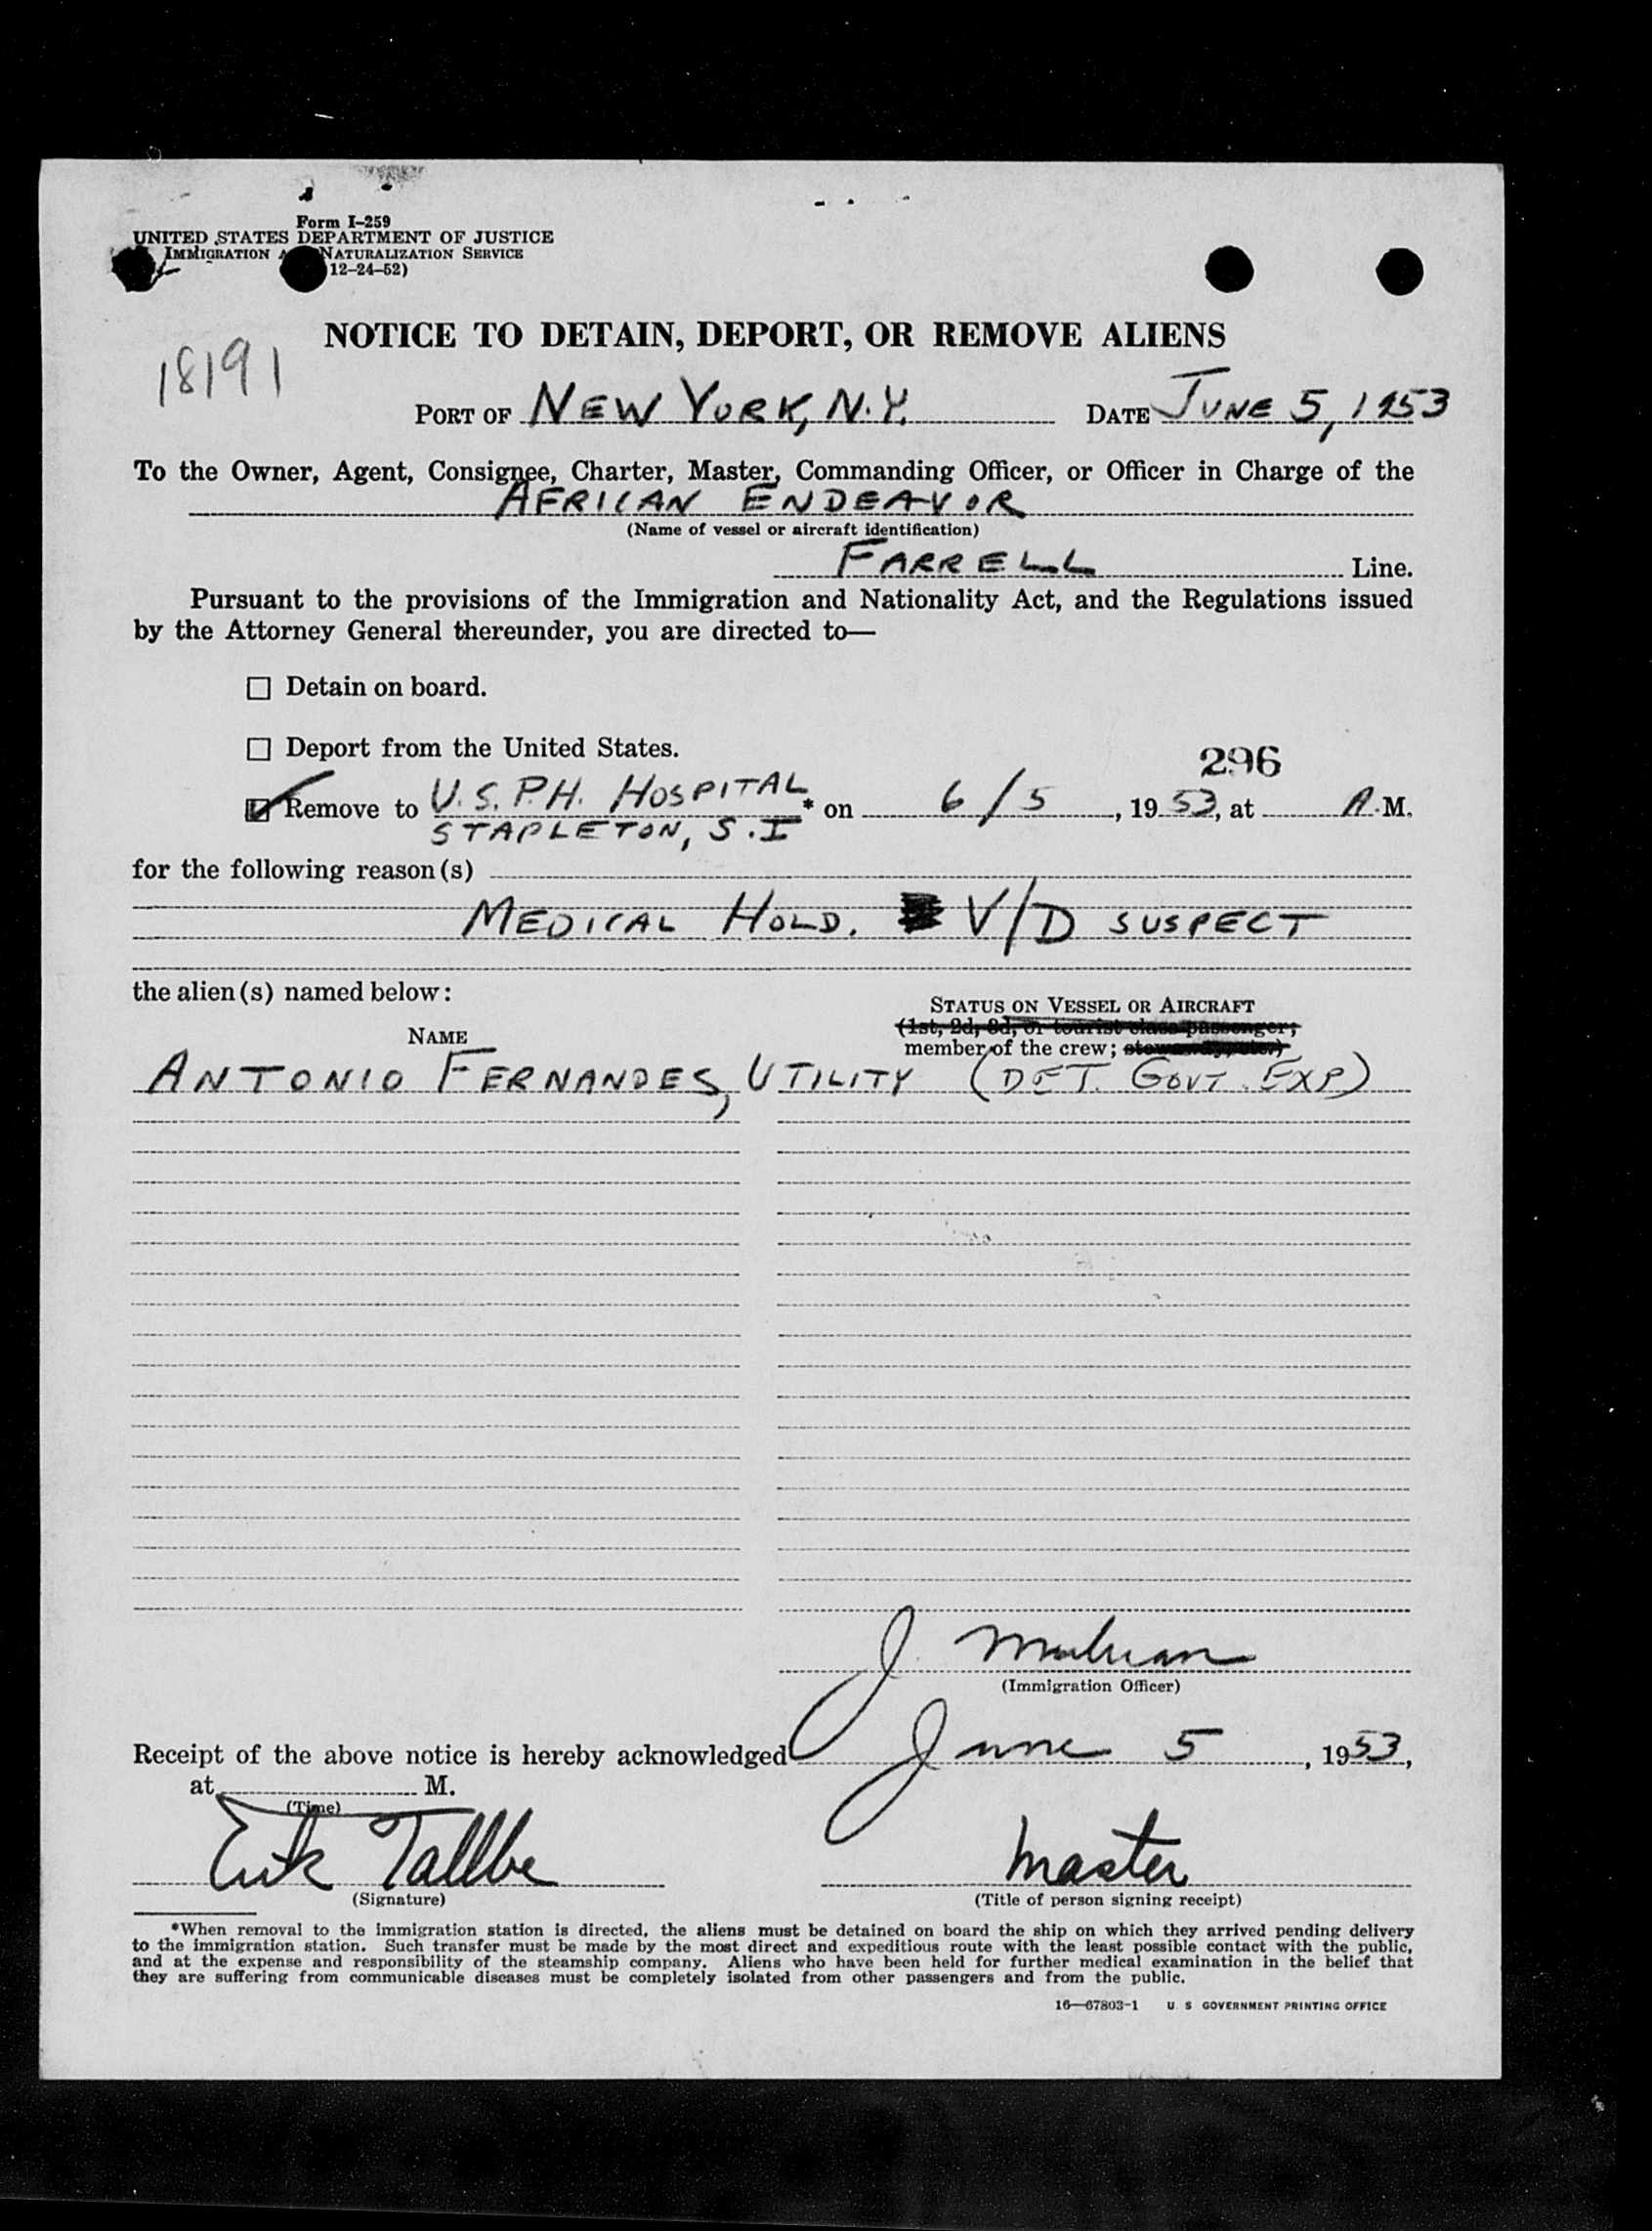 Form I-259
UNITED STATES DEPARTMENT OF JUSTICE
IMMIGRATION NATURALIZATION SERVICE
12-24-52)
NOTICE TO DETAIN, DEPORT, OR REMOVE ALIENS
18191
PORT OF NEW YORK, N.Y. DATE JUNE 5, 1953
To the Owner, Agent, Consignee, Charter, Master, Commanding Officer, or Officer in Charge of the
AFRICAN ENDEAVOR
(Name of vessel or aircraft identification)
FARRELL Line.
Pursuant to the provisions of the Immigration and Nationality Act, and the Regulations issued
by the Attorney General thereunder, you are directed to—
☐ Detain on board.
☐ Deport from the United States.
296
☑ Remove to U.S.P.H. HOSPITAL * on 6/5, 1953, at A.M.
STAPLETON, S.I
for the following reason(s)
MEDICAL HOLD. V/D SUSPECT
the alien(s) named below:
STATUS ON VESSEL OR AIRCRAFT
(1st, 2d, 3d, or tourist class passenger;
NAME
member of the crew;
ANTONIO FERNANDES, UTILITY (DET. GOVT. EXP)
J.
(Immigration Officer)
Receipt of the above notice is hereby acknowledged June 5, 1953,
at M.
(Time)
Erik Tallbe Master
(Signature) (Title of person signing receipt)
*When removal to the immigration station is directed, the aliens must be detained on board the ship on which they arrived pending delivery
to the immigration station. Such transfer must be made by the most direct and expeditious route with the least possible contact with the public,
and at the expense and responsibility of the steamship company. Aliens who have been held for further medical examination in the belief that
they are suffering from communicable diseases must be completely isolated from other passengers and from the public.
16—67803-1 U. S GOVERNMENT PRINTING OFFICE